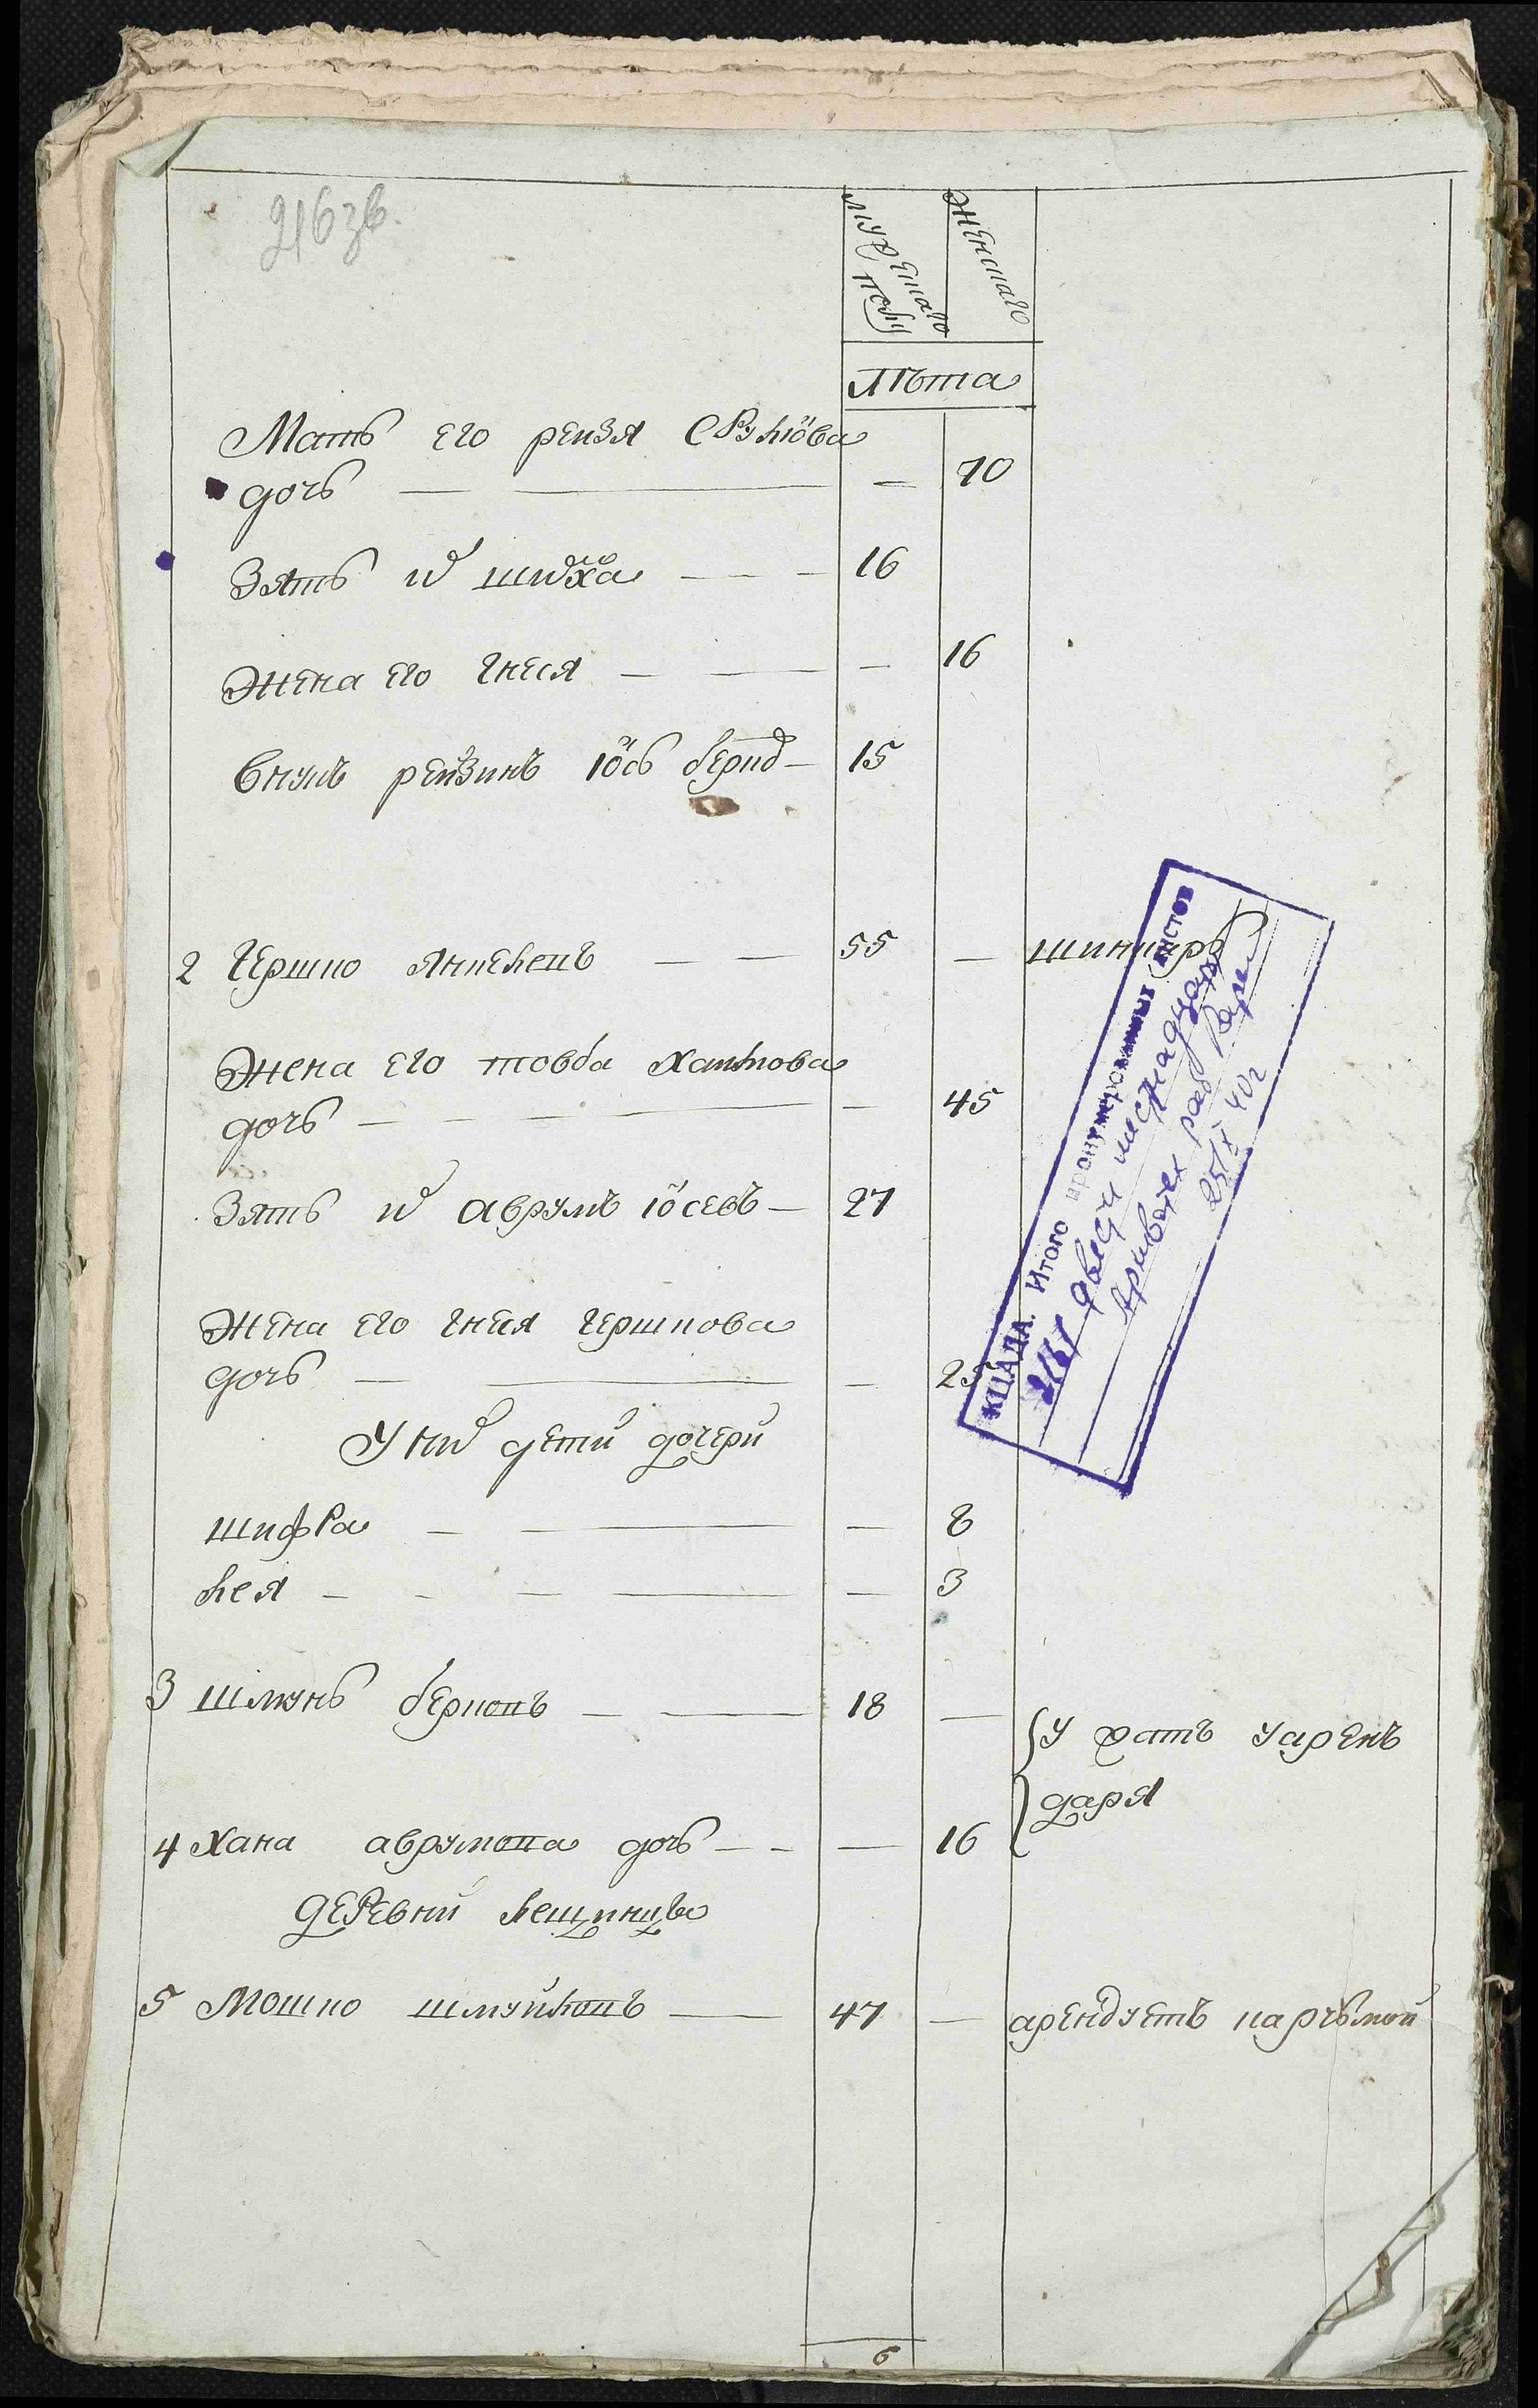 216 зв.
мужескаго полу
женскаго
Лѣта
Мать его рейзя Срулiова
дочь — — 70
Зять их 16
Жена его гнеся — — — 16
внукъ рейзинъ iось берко 15
2 Гершко Янкелевъ — — 55 — шинкарь
Жена его товба Хаимова
дочь — — — 45
Зять их аврумъ iосевъ — 27
Жена его гнеся гершкова
дочь — — — 25
У них дети дочери
шифра — — — 8
лея — — — 3
3 шмунь берковъ — — 18 —
{у хатѣ уарен
4 Хана аврумова дочь — — — 16
} даря
деревни лещинцы
5 Мошко шмуйловъ — 47 — арендуетъ карчьмой
6
КЦАДА. Итого пронумерованных листов
216/ двести шестнадцать
Архивтех раб
25/X 40 г